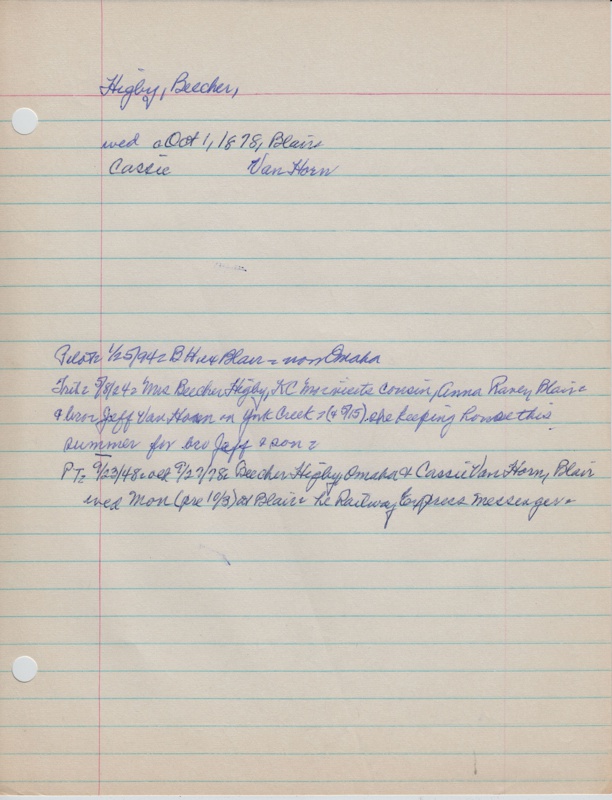 Higby, Beecher,
wed Oct 1, 1878, Blair
Cassie Van Horn
Pilot= 1/25/94= B H Blair= now Omaha
Trib= 8/24= Mrs Beecher Higby, KC cousin, Anna Raney Blair=
& bro Jeff Van Horn on York Creek = (& 8/15) she keeping house this
summer for bro Jeff & son=
PT= 9/23/48= 9/27/78= Beecher Higby Omaha & Cassie Van Horn, Blair
wed Mon (pre 10/3) at Blair= he Railway Express Messenger=